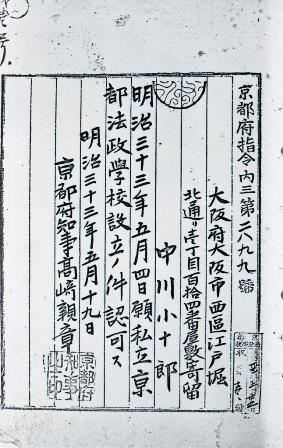 京都府指令内三第二八九九號
大阪府大阪市西區江戸堀
北通リ壱丁目百拾四番屋敷寄留
中川小十郎
明治三十三年五月四日願私立京
都法政學校設立ノ件認可ス
明治三十三年五月十九日
京都府知事髙崎親章
京都府
知事
之印